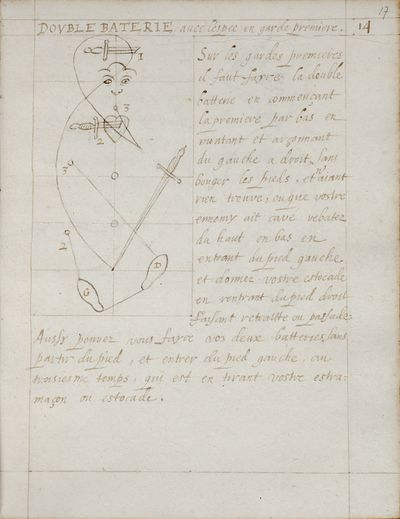 17
DOVBLE BATERIE auec l'espee en garde premiere.
14
Sur les gardes premieres
il faut fayre la double
batterie en commençant
la premiere par bas en
montant et arçonnant
du gauche a droit, sans
bouger les pieds, et n'aiant
rien trouue, ou que vostre
ennemy ait cavé rebatez
du haut en bas en
entrant du pied gauche
et donnez vostre estocade
en rentrant du pied droit
faisant retraitte ou passade.
Aussy pouuez vous fayre vos deux batteries sans
partir du pied, et entrer du pied gauche, au
troisiesme temps, qui est en tirant vostre estra-
maçon ou estocade.
1
3
2
3
2
G
D